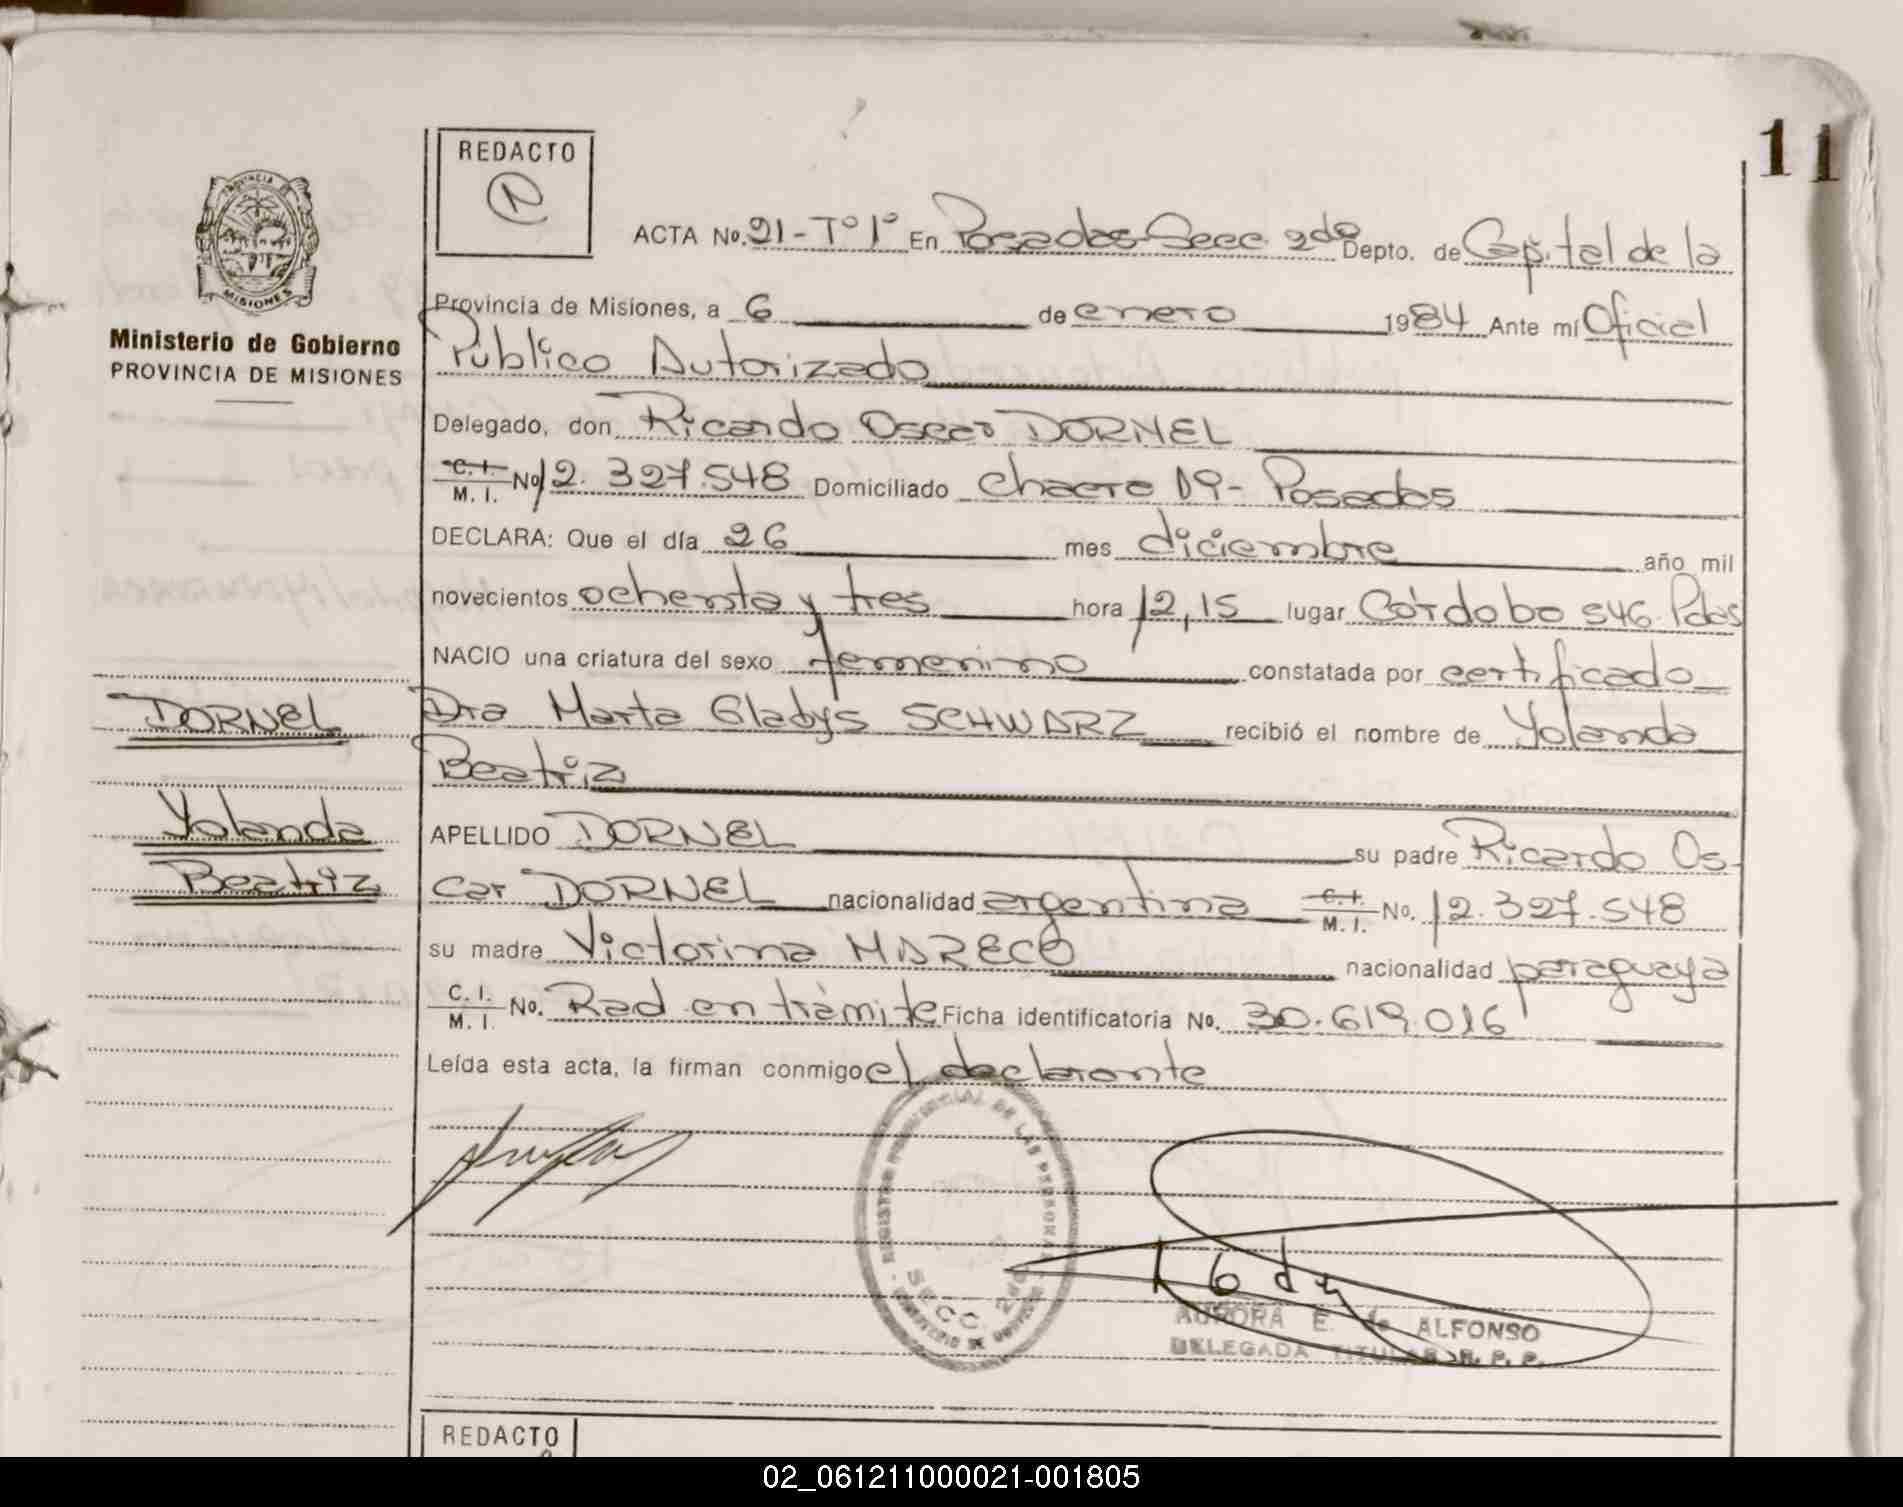 11
REDACTO
PROVINCIA DE
MISIONES
Ministerio de Gobierno
PROVINCIA DE MISIONES
ACTA No. 21-T°1° En Posadas-Secc. 2da Depto. de Capital de la
Provincia de Misiones, a 6 de enero 1984 Ante mí Oficial
Público Autorizado
Delegado, don Ricardo Oscar DORNEL
C. I. / M. I. No 12.327.548 Domiciliado Chacra 19- Posadas
DECLARA: Que el día 26 mes diciembre año mil
novecientos ochenta y tres hora 12,15 lugar Córdoba 546. Pdas
NACIO una criatura del sexo femenino constatada por certificado
DORNEL
Dra Marta Gladys SCHWARZ recibió el nombre de Yolanda
Beatriz
Yolanda
Beatriz
APELLIDO DORNEL su padre Ricardo Os-
car DORNEL nacionalidad argentina C. I. / M. I. No. 12.327.548
su madre Victorina MARECO nacionalidad paraguaya
C. I. / M. I. No. Rad en trámite Ficha identificatoria No. 30.619.016
Leída esta acta, la firman conmigo el declarante
REGISTRO PROVINCIAL DE LAS PERSONAS
SECC. 2da
AURORA E. de ALFONSO
DELEGADA TITULAR R. P. P.
REDACTO
02_061211000021-001805